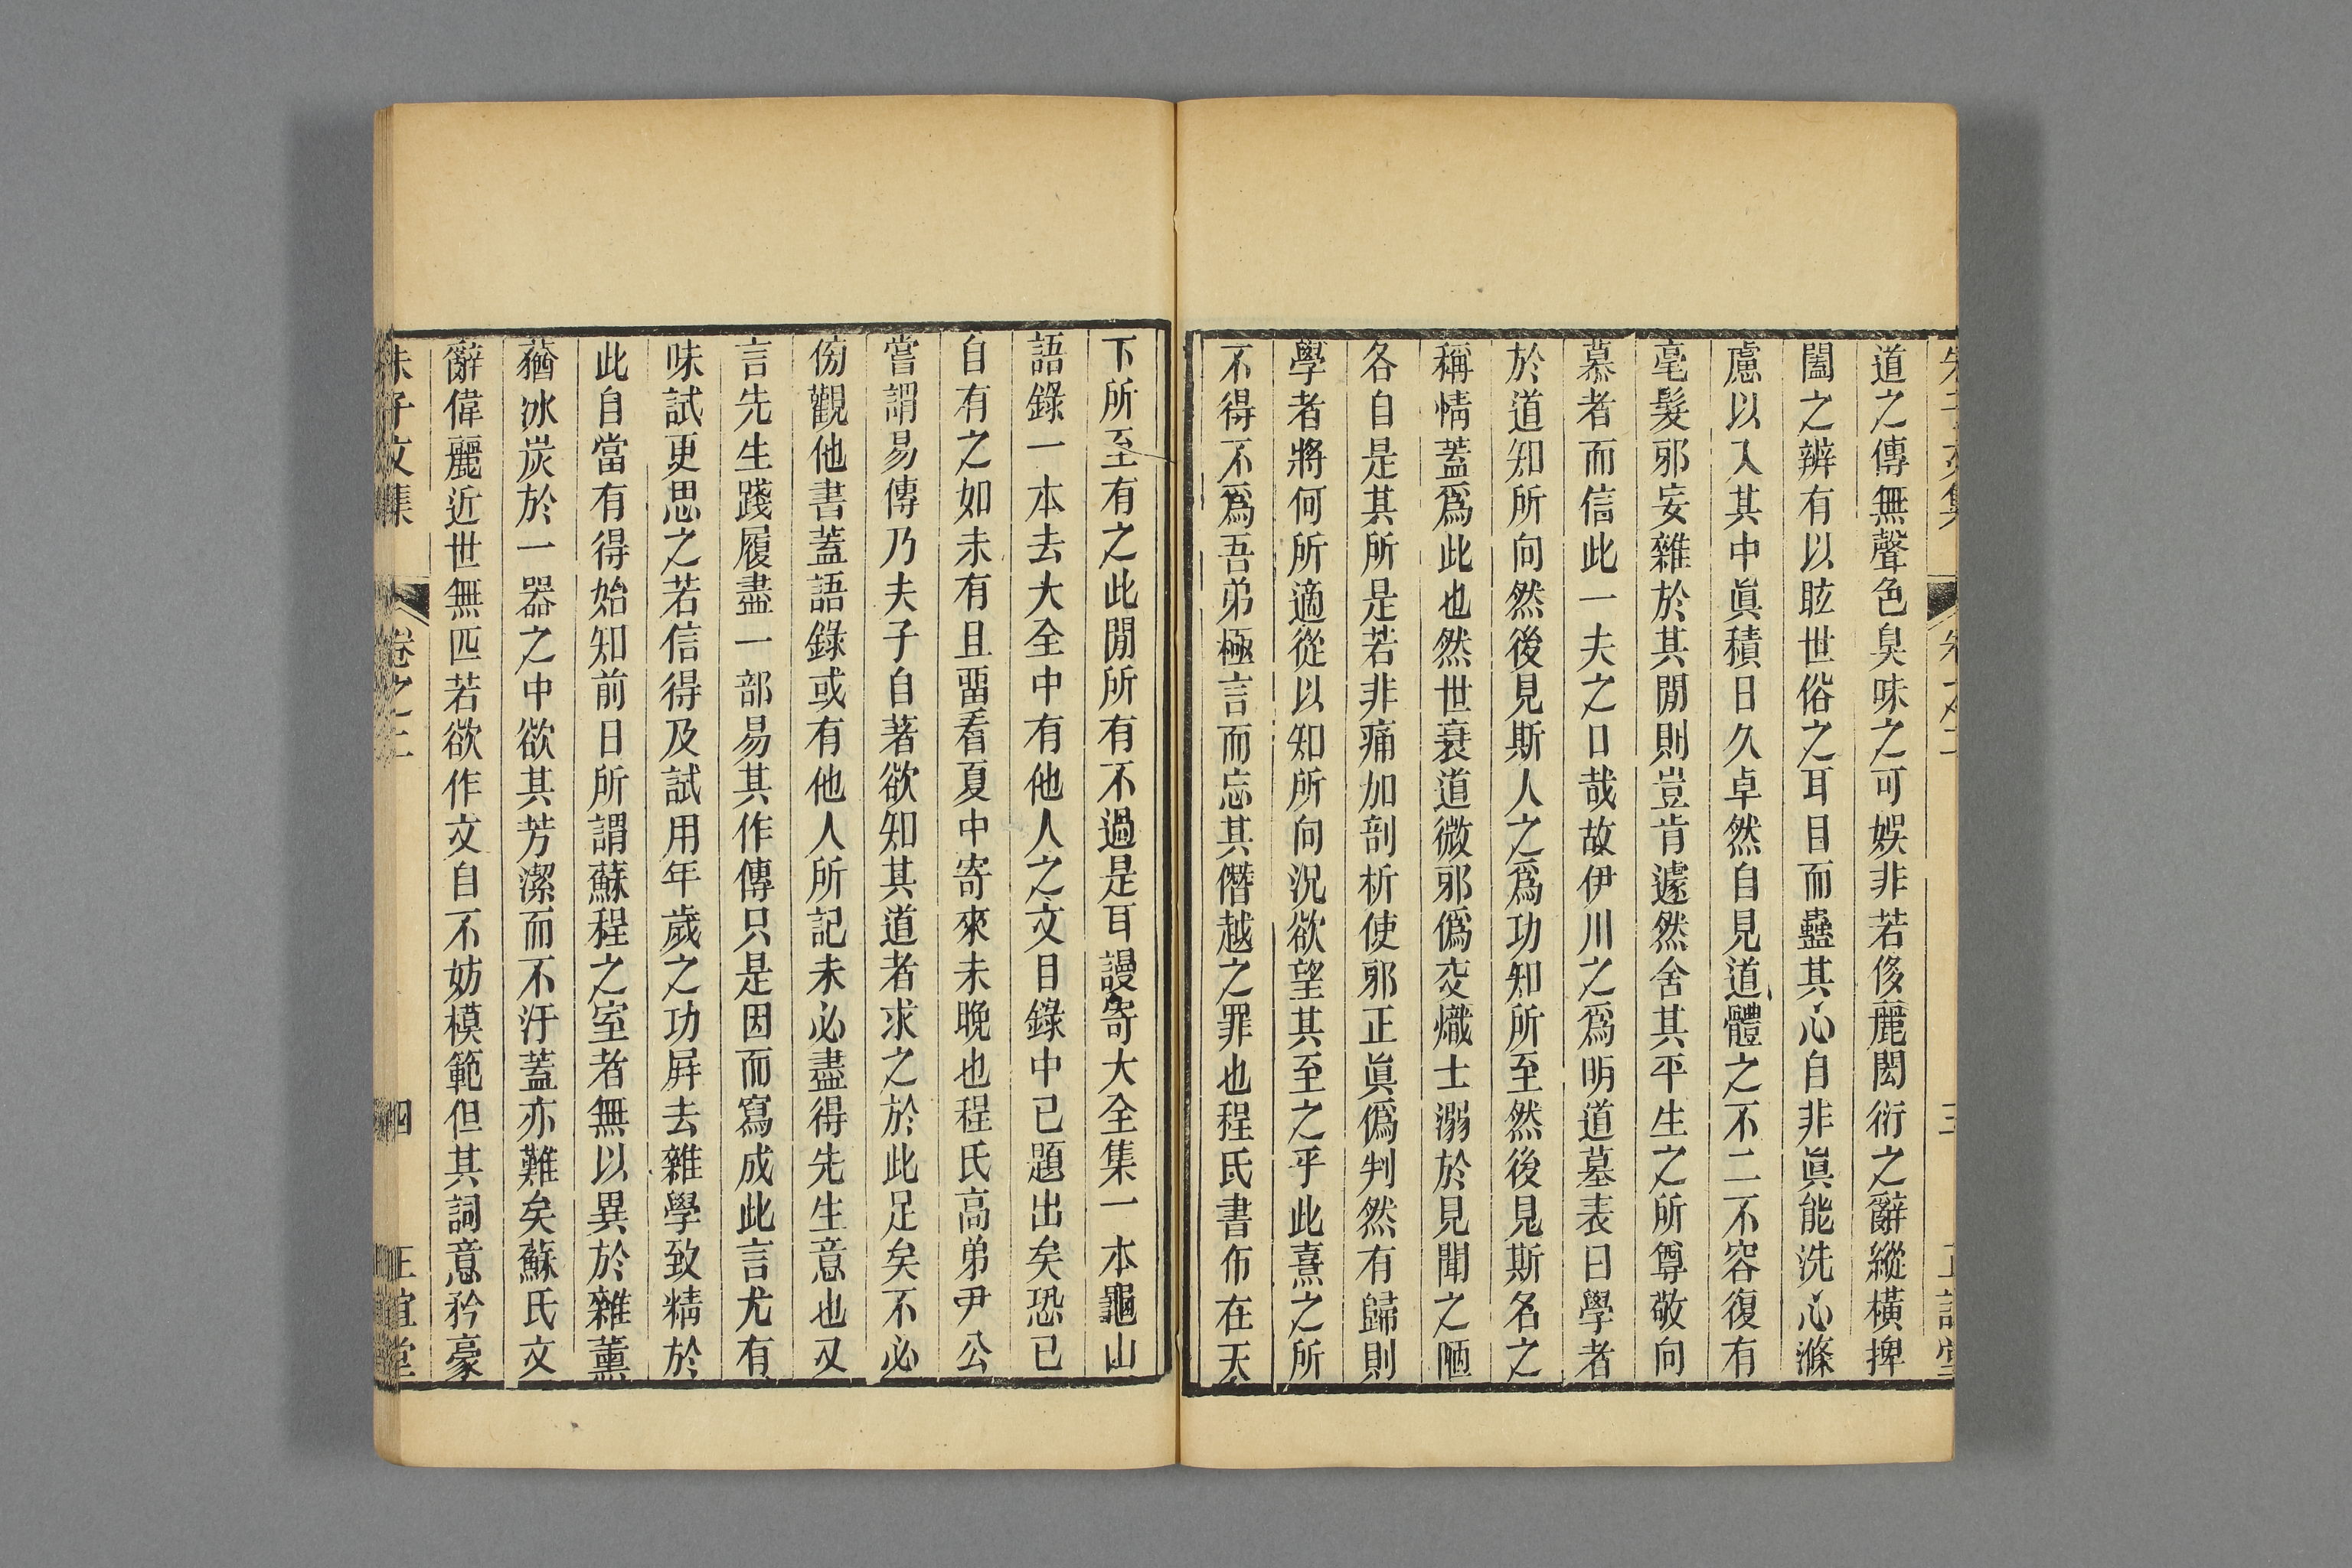 道之傳無聲色臭味之可娛非若侈麗閎衍之辭縱橫捭
闔之辨有以眩世俗之耳目而蠱其心自非眞能洗心滌
慮以入其中眞積日久卓然自見道體之不二不容復有
毫髮邪妄雜於其閒則豈肯遽然舍其平生之所尊敬向
慕者而信此一夫之口哉故伊川之爲明道墓表曰學者
於道知所向然後見斯人之爲功知所至然後見斯名之
稱情蓋爲此也然世衰道微邪僞交熾士溺於見聞之陋
各自是其所是若非痛加剖析使邪正眞僞判然有歸則
學者將何所適從以知所向況欲望其至之乎此熹之所
不得不爲吾弟極言而忘其僭越之罪也程氏書布在天
下所至有之此閒所有不過是耳謾寄大全集一本龜山
語錄一本去大全中有他人之文目錄中已題出矣恐已
自有之如未有且畱看夏中寄來未晚也程氏高弟尹公
嘗謂易傳乃夫子自著欲知其道者求之於此足矣不必
傍觀他書蓋語錄或有他人所記未必盡得先生意也又
言先生踐履盡一部易其作傳只是因而寫成此言尤有
味試更思之若信得及試用年歲之功屛去雜學致精於
此自當有得始知前日所謂蘇程之室者無以異於雜薰
蕕冰炭於一器之中欲其芳潔而不汙蓋亦難矣蘇氏文
辭偉麗近世無匹若欲作文自不妨模範但其詞意矜豪
朱子文集 卷之二 四 正誼堂